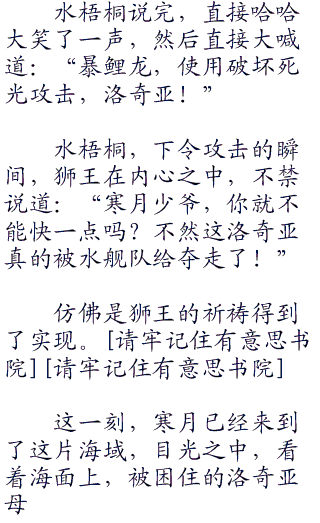 水梧桐说完，直接哈哈
大笑了一声，然后直接大喊
道：“暴鲤龙，使用破坏死
光攻击，洛奇亚！”
水梧桐，下令攻击的瞬
间，狮王在内心之中，不禁
说道：“寒月少爷，你就不
能快一点吗？不然这洛奇亚
真的被水舰队给夺走了！”
仿佛是狮王的祈祷得到
了实现。[请牢记住有意思书
院][请牢记住有意思书院]
这一刻，寒月已经来到
了这片海域，目光之中，看
着海面上，被困住的洛奇亚
母